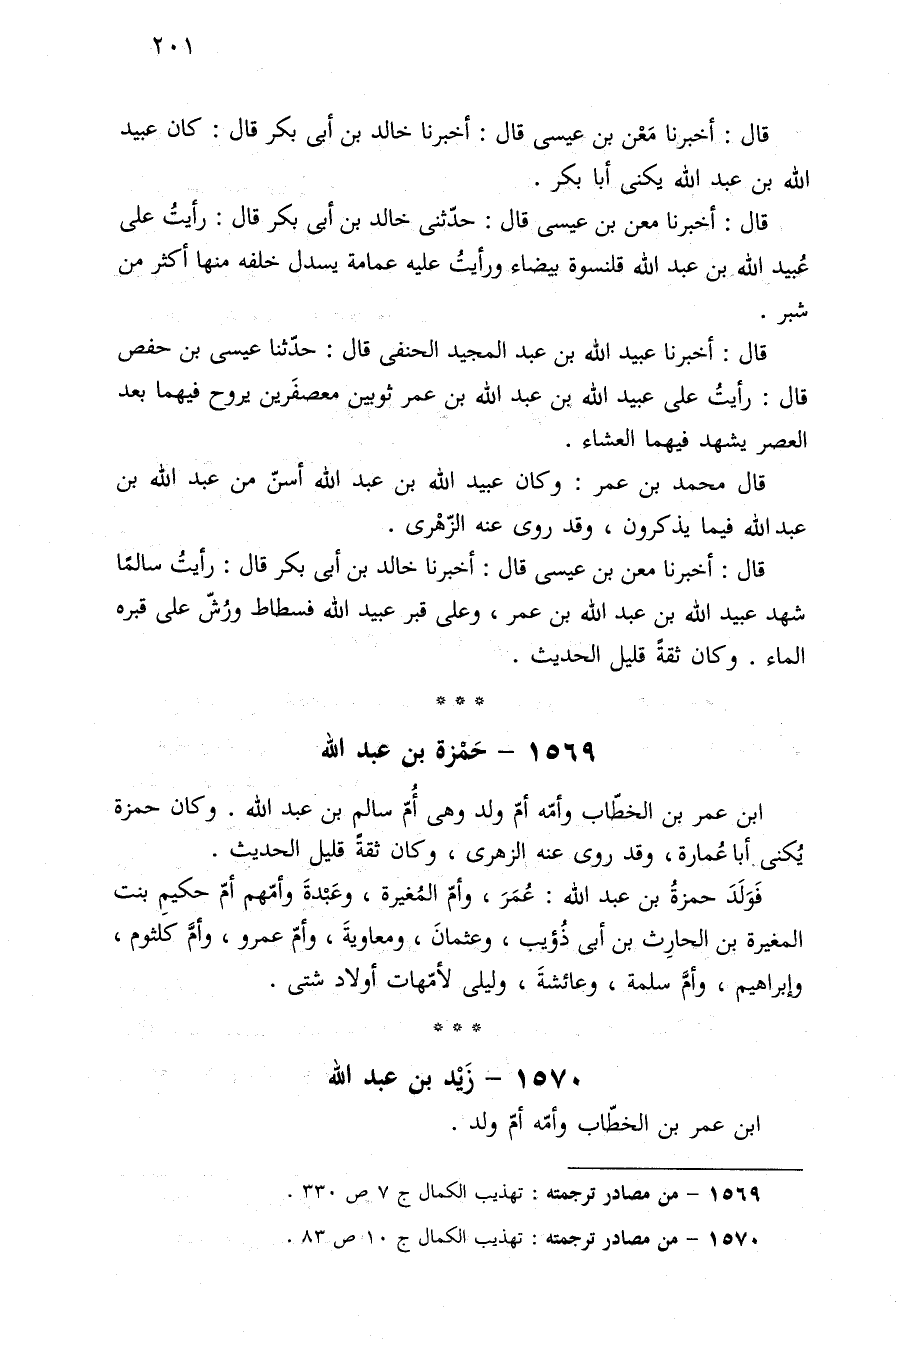 ٢٠١
قال : أخبرنا مَعْن بن عيسى قال : أخبرنا خالد بن أبى بكر قال : كان عبيد
الله بن عبد الله يكنى أبا بكر .
قال : أخبرنا معن بن عيسى قال : حدّثنى خالد بن أبى بكر قال : رأيتُ على
عُبيد الله بن عبد الله قلنسوة بيضاء ورأيتُ عليه عمامة يسدل خلفه منها أكثر من
شبر .
قال : أخبرنا عبيد الله بن عبد المجيد الحنفى قال : حدّثنا عيسى بن حفص
قال : رأيتُ على عبيد الله بن عبد الله بن عمر ثوبين معصفَرين يروح فيهما بعد
العصر يشهد فيهما العشاء .
قال محمد بن عمر : وكان عبيد الله بن عبد الله أسنّ من عبد الله بن
عبد الله فيما يذكرون ، وقد روى عنه الزّهْرى .
قال : أخبرنا معن بن عيسى قال : أخبرنا خالد بن أبى بكر قال : رأيتُ سالمًا
شهد عبيد الله بن عبد الله بن عمر ، وعلى قبر عبيد الله فسطاط ورُشّ على قبره
الماء . وكان ثقةً قليل الحديث .
* * *
١٥٦٩ – حَمْزة بن عبد الله
ابن عمر بن الخطّاب وأمّه أمّ ولد وهى أُمّ سالم بن عبد الله . وكان حمزة
يُكنى أبا عُمارة ، وقد روى عنه الزهرى ، وكان ثقةً قليل الحديث .
فَوَلَدَ حمزةُ بن عبد الله : عُمَرَ ، وأمّ المُغيرة ، وعَبْدةَ وأمّهم أمّ حكيمِ بنت
المغيرة بن الحارِث بن أبى ذُؤيب ، وعثمانَ ، ومعاويةَ ، وأمّ عمرو ، وأمَّ كلثوم ،
وإبراهيم ، وأمَّ سلمة ، وعائشةَ ، وليلى لأمّهات أولاد شتى .
* * *
١٥٧٠ – زَيْد بن عبد الله
ابن عمر بن الخطّاب وأمّه أمّ ولد .
١٥٦٩ – من مصادر ترجمته : تهذيب الكمال ج ٧ ص ٣٣٠ .
١٥٧٠ – من مصادر ترجمته : تهذيب الكمال ج ١٠ ص ٨٣ .